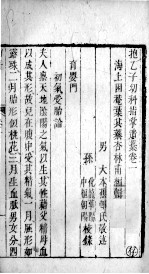 抱乙子幼科指掌遺藁卷二
海上回菴葉其蓁杏林甫編輯
男 大本
孫
育嬰門
初氣受胎論
夫人稟天地陰陽之氣以生其身藉父精母血
以成其形故兒在腹中受其精氣一月胚形如
露珠二月胎形似桃花三月生血脈男女分四